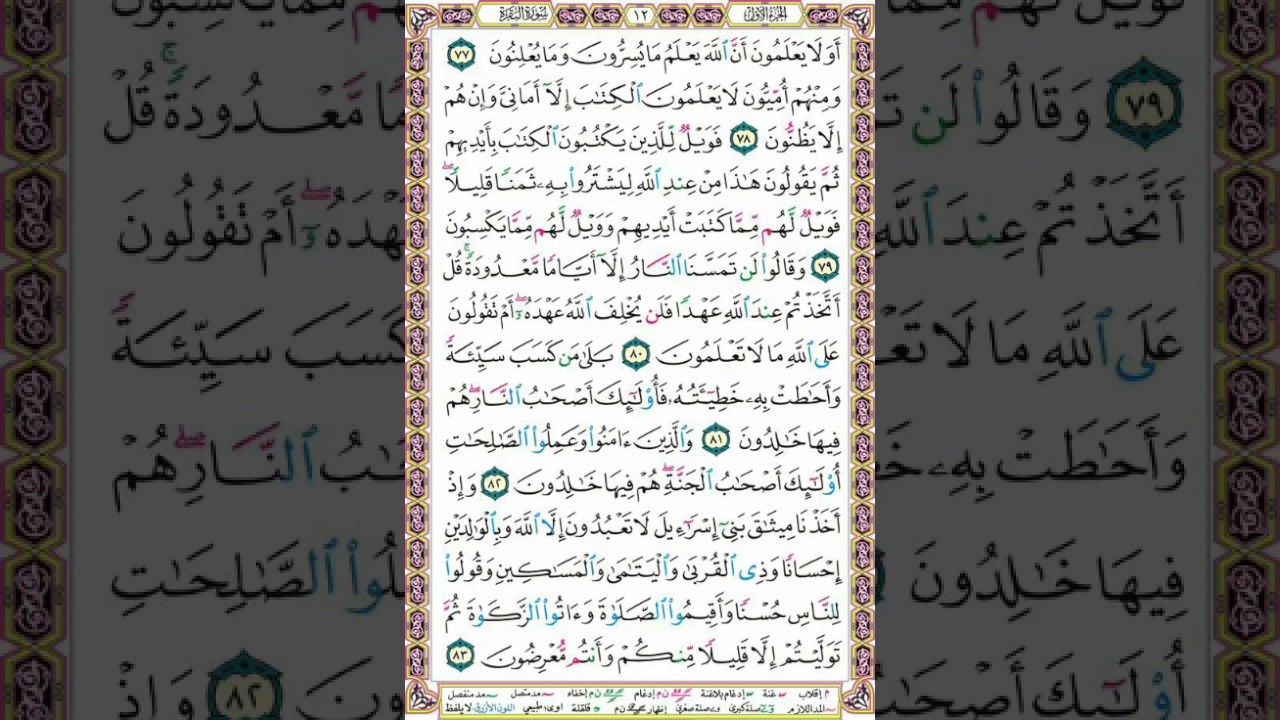 الجزء الأول
١٢
سورة البقرة
أَوَلَا يَعْلَمُونَ أَنَّ ٱللَّهَ يَعْلَمُ مَا يُسِرُّونَ وَمَا يُعْلِنُونَ ٧٧
وَمِنْهُمْ أُمِّيُّونَ لَا يَعْلَمُونَ ٱلْكِتَٰبَ إِلَّآ أَمَانِيَّ وَإِنْ هُمْ
إِلَّا يَظُنُّونَ ٧٨ فَوَيْلٌ لِّلَّذِينَ يَكْتُبُونَ ٱلْكِتَٰبَ بِأَيْدِيهِمْ
ثُمَّ يَقُولُونَ هَٰذَا مِنْ عِندِ ٱللَّهِ لِيَشْتَرُوا۟ بِهِۦ ثَمَنًا قَلِيلًا ۖ
فَوَيْلٌ لَّهُم مِّمَّا كَتَبَتْ أَيْدِيهِمْ وَوَيْلٌ لَّهُم مِّمَّا يَكْسِبُونَ
٧٩ وَقَالُوا۟ لَن تَمَسَّنَا ٱلنَّارُ إِلَّآ أَيَّامًا مَّعْدُودَةً ۚ قُلْ
أَتَّخَذْتُمْ عِندَ ٱللَّهِ عَهْدًا فَلَن يُخْلِفَ ٱللَّهُ عَهْدَهُۥٓ ۖ أَمْ تَقُولُونَ
عَلَى ٱللَّهِ مَا لَا تَعْلَمُونَ ٨٠ بَلَىٰ مَن كَسَبَ سَيِّئَةً
وَأَحَٰطَتْ بِهِۦ خَطِيٓـَٔتُهُۥ فَأُو۟لَٰٓئِكَ أَصْحَٰبُ ٱلنَّارِ ۖ هُمْ
فِيهَا خَٰلِدُونَ ٨١ وَٱلَّذِينَ ءَامَنُوا۟ وَعَمِلُوا۟ ٱلصَّٰلِحَٰتِ
أُو۟لَٰٓئِكَ أَصْحَٰبُ ٱلْجَنَّةِ ۖ هُمْ فِيهَا خَٰلِدُونَ ٨٢ وَإِذْ
أَخَذْنَا مِيثَٰقَ بَنِىٓ إِسْرَٰٓءِيلَ لَا تَعْبُدُونَ إِلَّا ٱللَّهَ وَبِٱلْوَٰلِدَيْنِ
إِحْسَانًا وَذِى ٱلْقُرْبَىٰ وَٱلْيَتَٰمَىٰ وَٱلْمَسَٰكِينِ وَقُولُوا۟
لِلنَّاسِ حُسْنًا وَأَقِيمُوا۟ ٱلصَّلَوٰةَ وَءَاتُوا۟ ٱلزَّكَوٰةَ ثُمَّ
تَوَلَّيْتُمْ إِلَّا قَلِيلًا مِّنكُمْ وَأَنتُم مُّعْرِضُونَ ٨٣
م إقلاب غنة إدغام بلاغنة ن م إدغام ن م إخفاء مد متصل مد منفصل
المد اللازم صلة كبرى صلة صغرى إظهار ن م قلقلة اوى طبيعي اللون الأزرق لا يلفظ